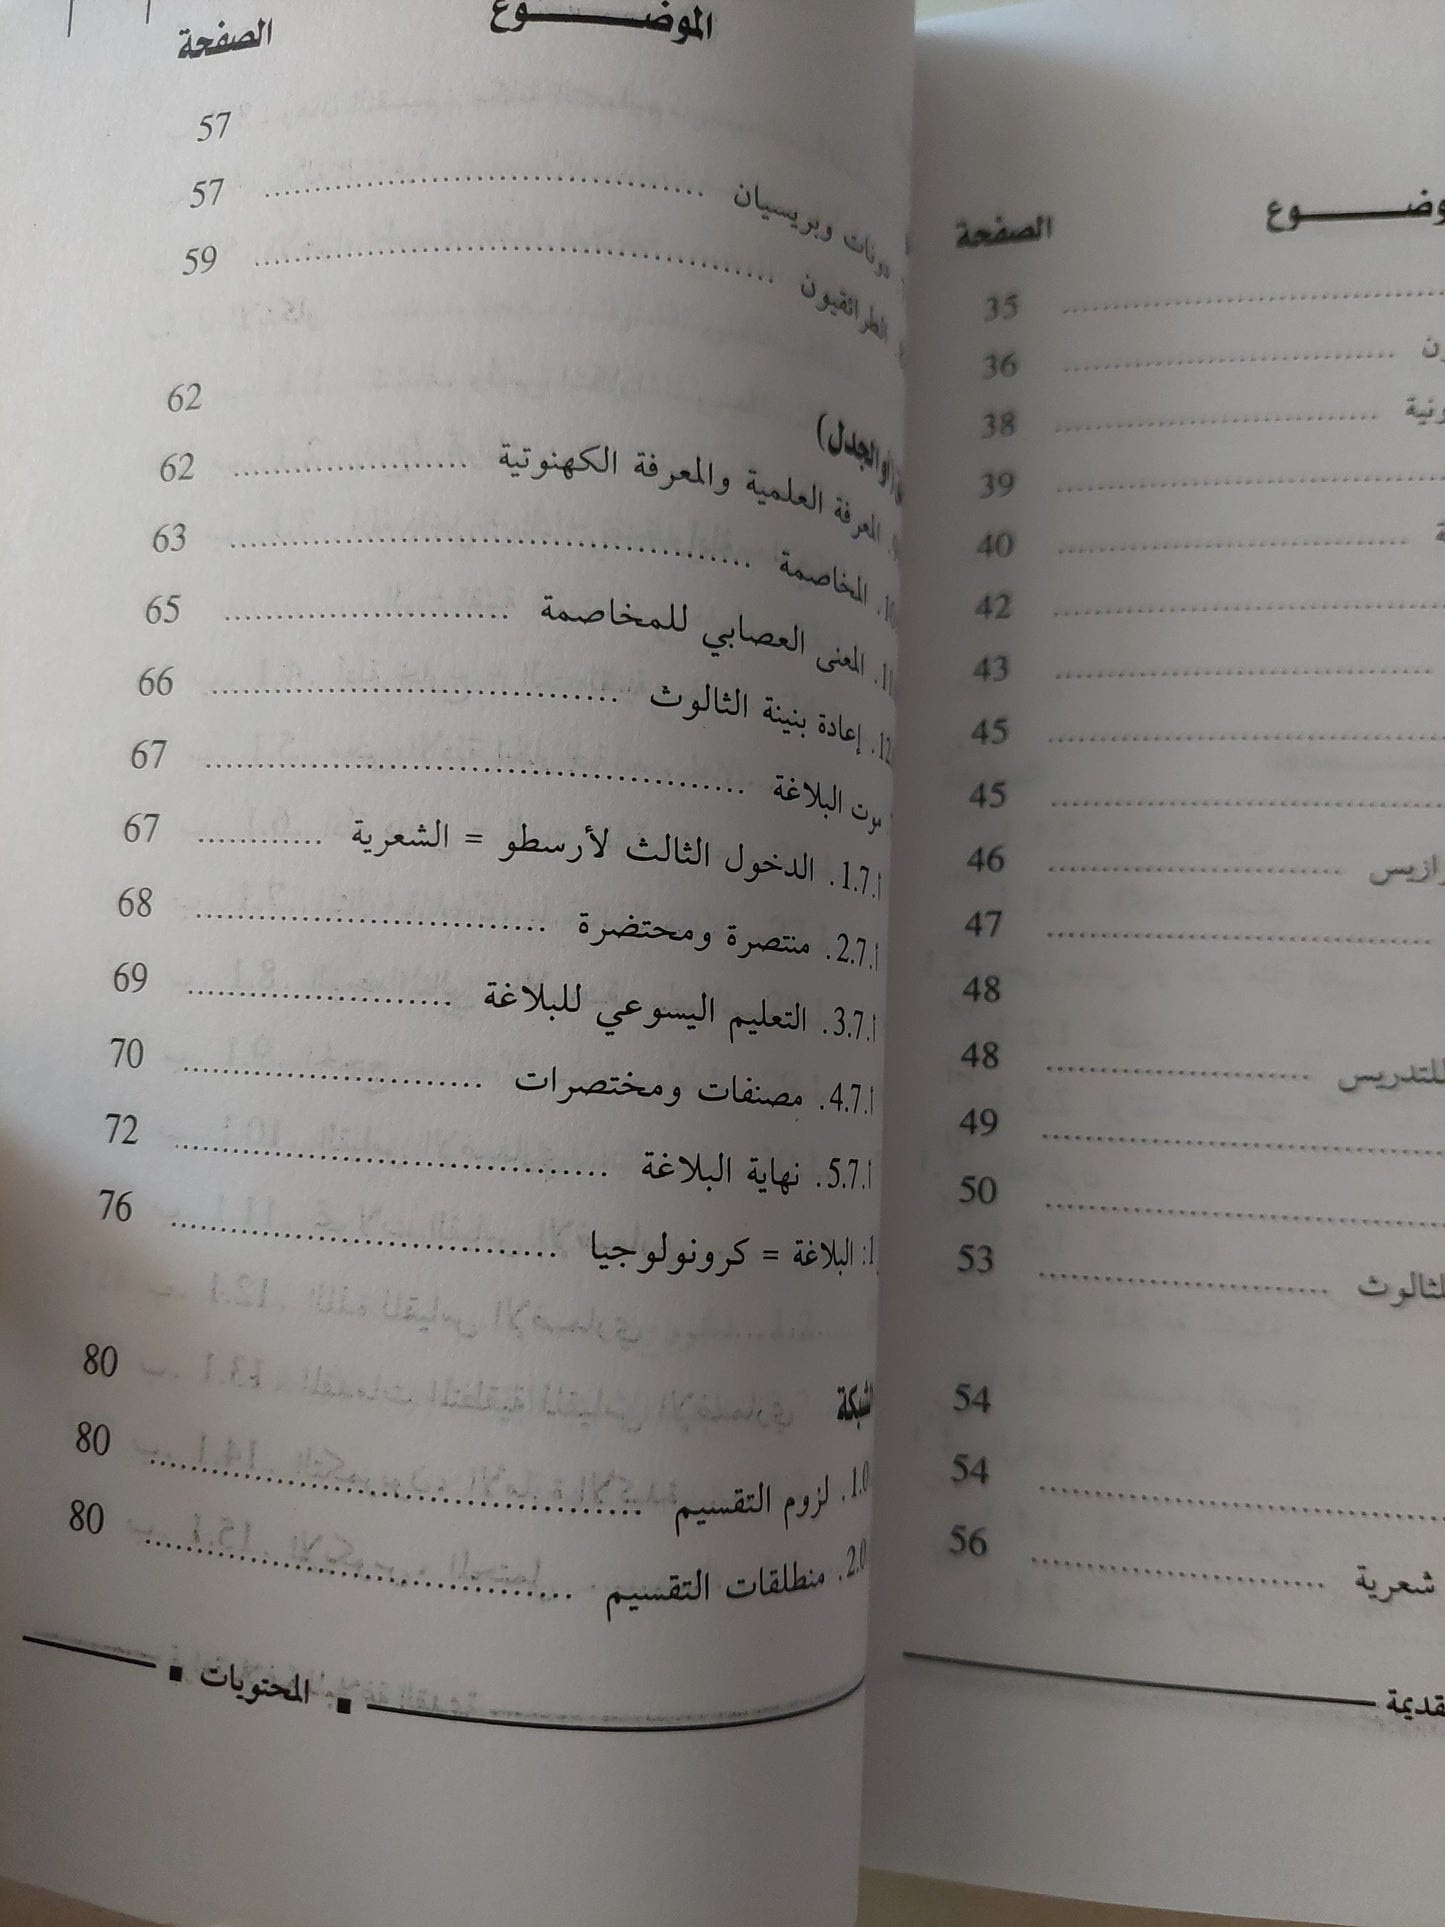 الصفحة
35
36
38
39
40
42
43
45
45
رازيس 46
47
48
للتدريس 48
49
50
للثالوث 53
54
54
شعرية 56
الموضــــــوع الصفحة
57
دونات وبريسيان 57
الطرائقيون 59
أو الجدل) 62
المعرفة العلمية والمعرفة الكهنوتية 62
10. المخاصمة 63
11. المعنى العصابي للمخاصمة 65
12. إعادة بنينة الثالوث 66
موت البلاغة 67
أ.1.7. الدخول الثالث لأرسطو = الشعرية 67
أ.2.7. منتصرة ومحتضرة 68
أ.3.7. التعليم اليسوعي للبلاغة 69
أ.4.7. مصنفات ومختصرات 70
أ.5.7. نهاية البلاغة 72
البلاغة = كرونولوجيا 76
الشبكة 80
1.0. لزوم التقسيم 80
2.0. منطلقات التقسيم 80
■ المحتويات ■